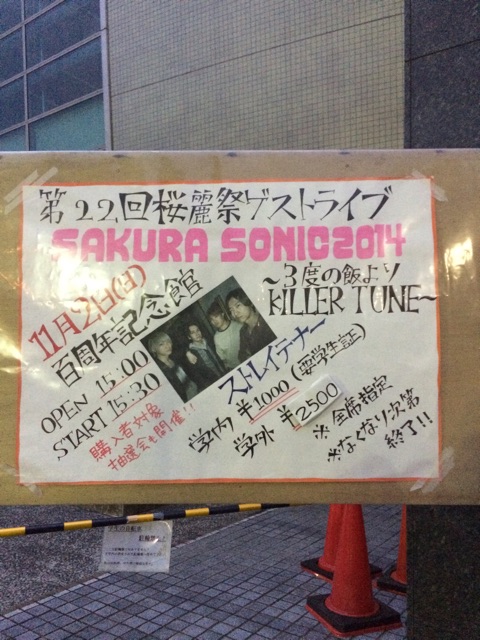 第22回桜麗祭ゲストライブ
SAKURA SONIC2014
〜3度の飯より
KILLER TUNE〜
11月2日(日)
百周年記念館
OPEN 15:00
START 15:30
購入者対象
抽選会も開催!!
ストレイテナー
学内 ¥1000(要学生証)
学外 ¥2500
※全席指定
※なくなり次第
終了!!